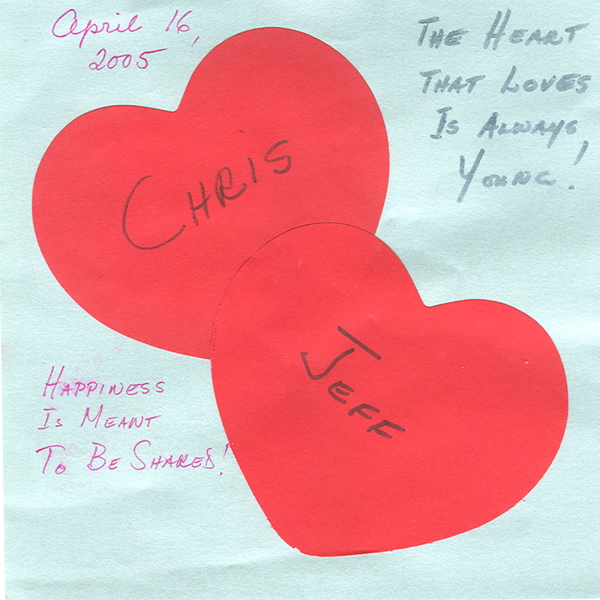 April 16,
2005
THE HEART
THAT LOVES
IS ALWAYS
YOUNG!
CHRIS
JEFF
HAPPINESS
IS MEANT
TO BE SHARED!